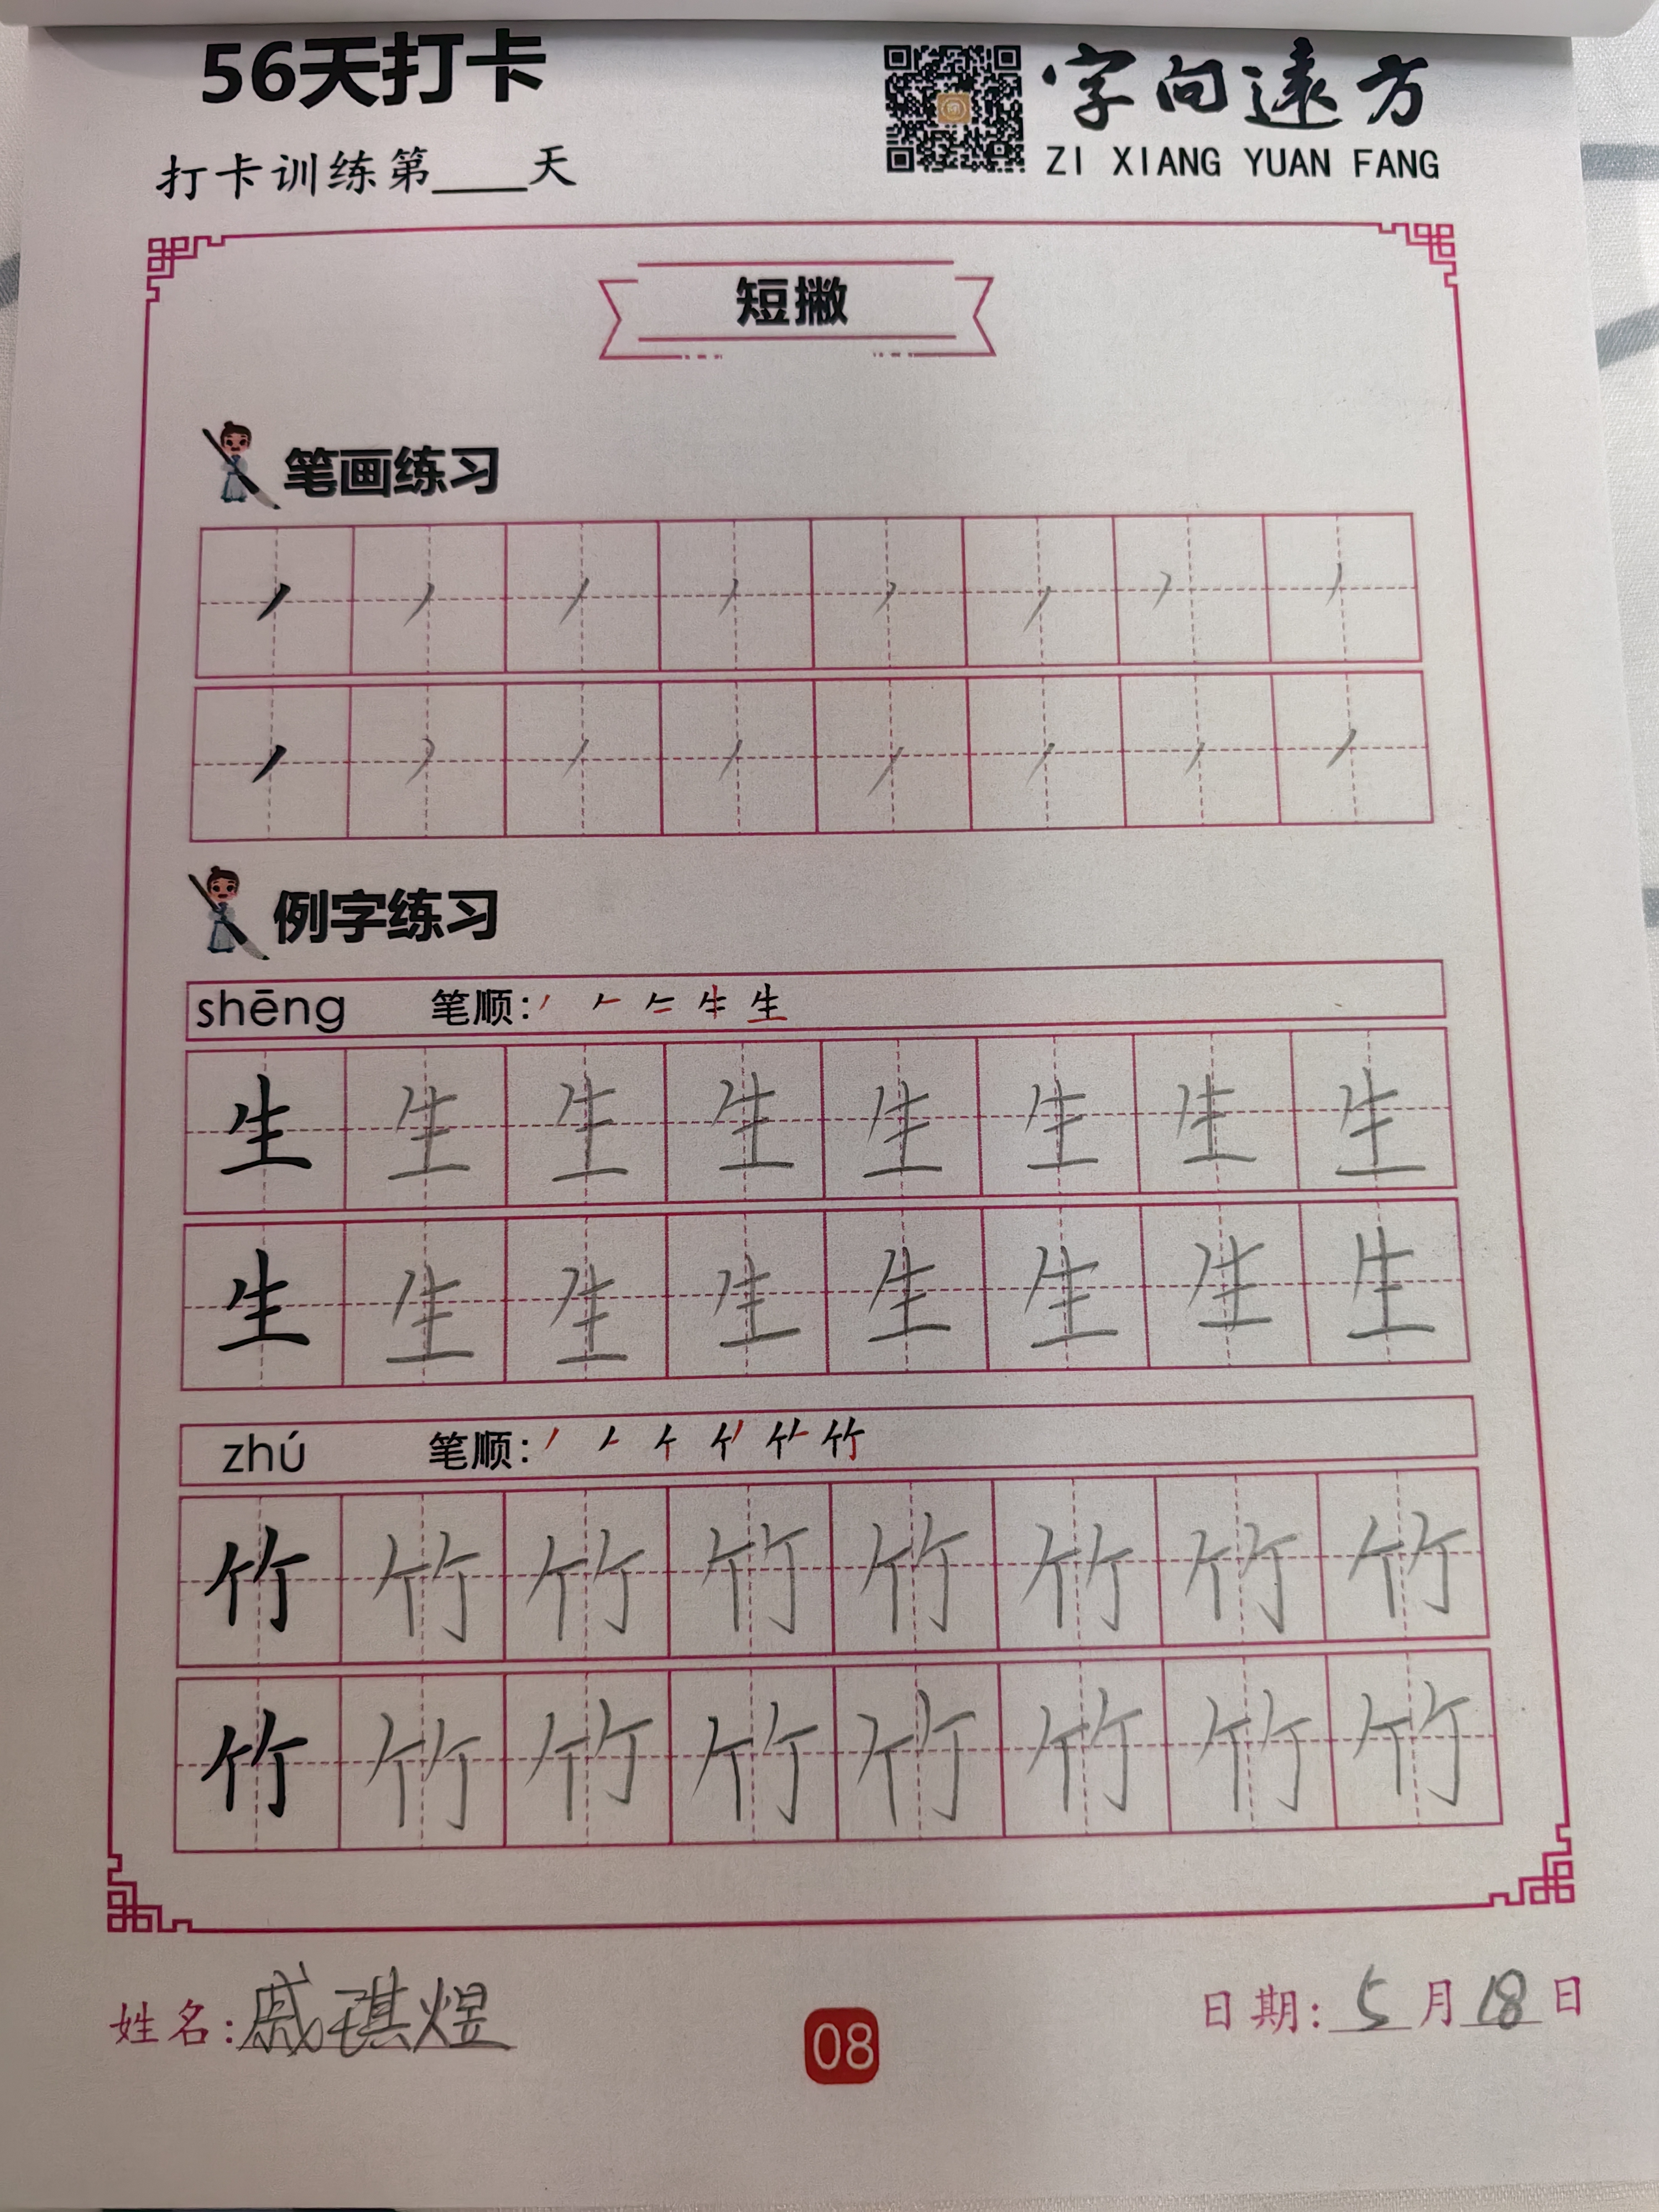 56天打卡
字向遠方
打卡训练第____天
ZI XIANG YUAN FANG
短撇
笔画练习
丿 丿 丿 丿 丿 丿 丿 丿
丿 丿 丿 丿 丿 丿 丿 丿
例字练习
shēng 笔顺:
生 生 生 生 生 生 生 生
生 生 生 生 生 生 生 生
zhú 笔顺:
竹 竹 竹 竹 竹 竹 竹 竹
竹 竹 竹 竹 竹 竹 竹 竹
姓名:戚琪煜
08
日期:5月18日